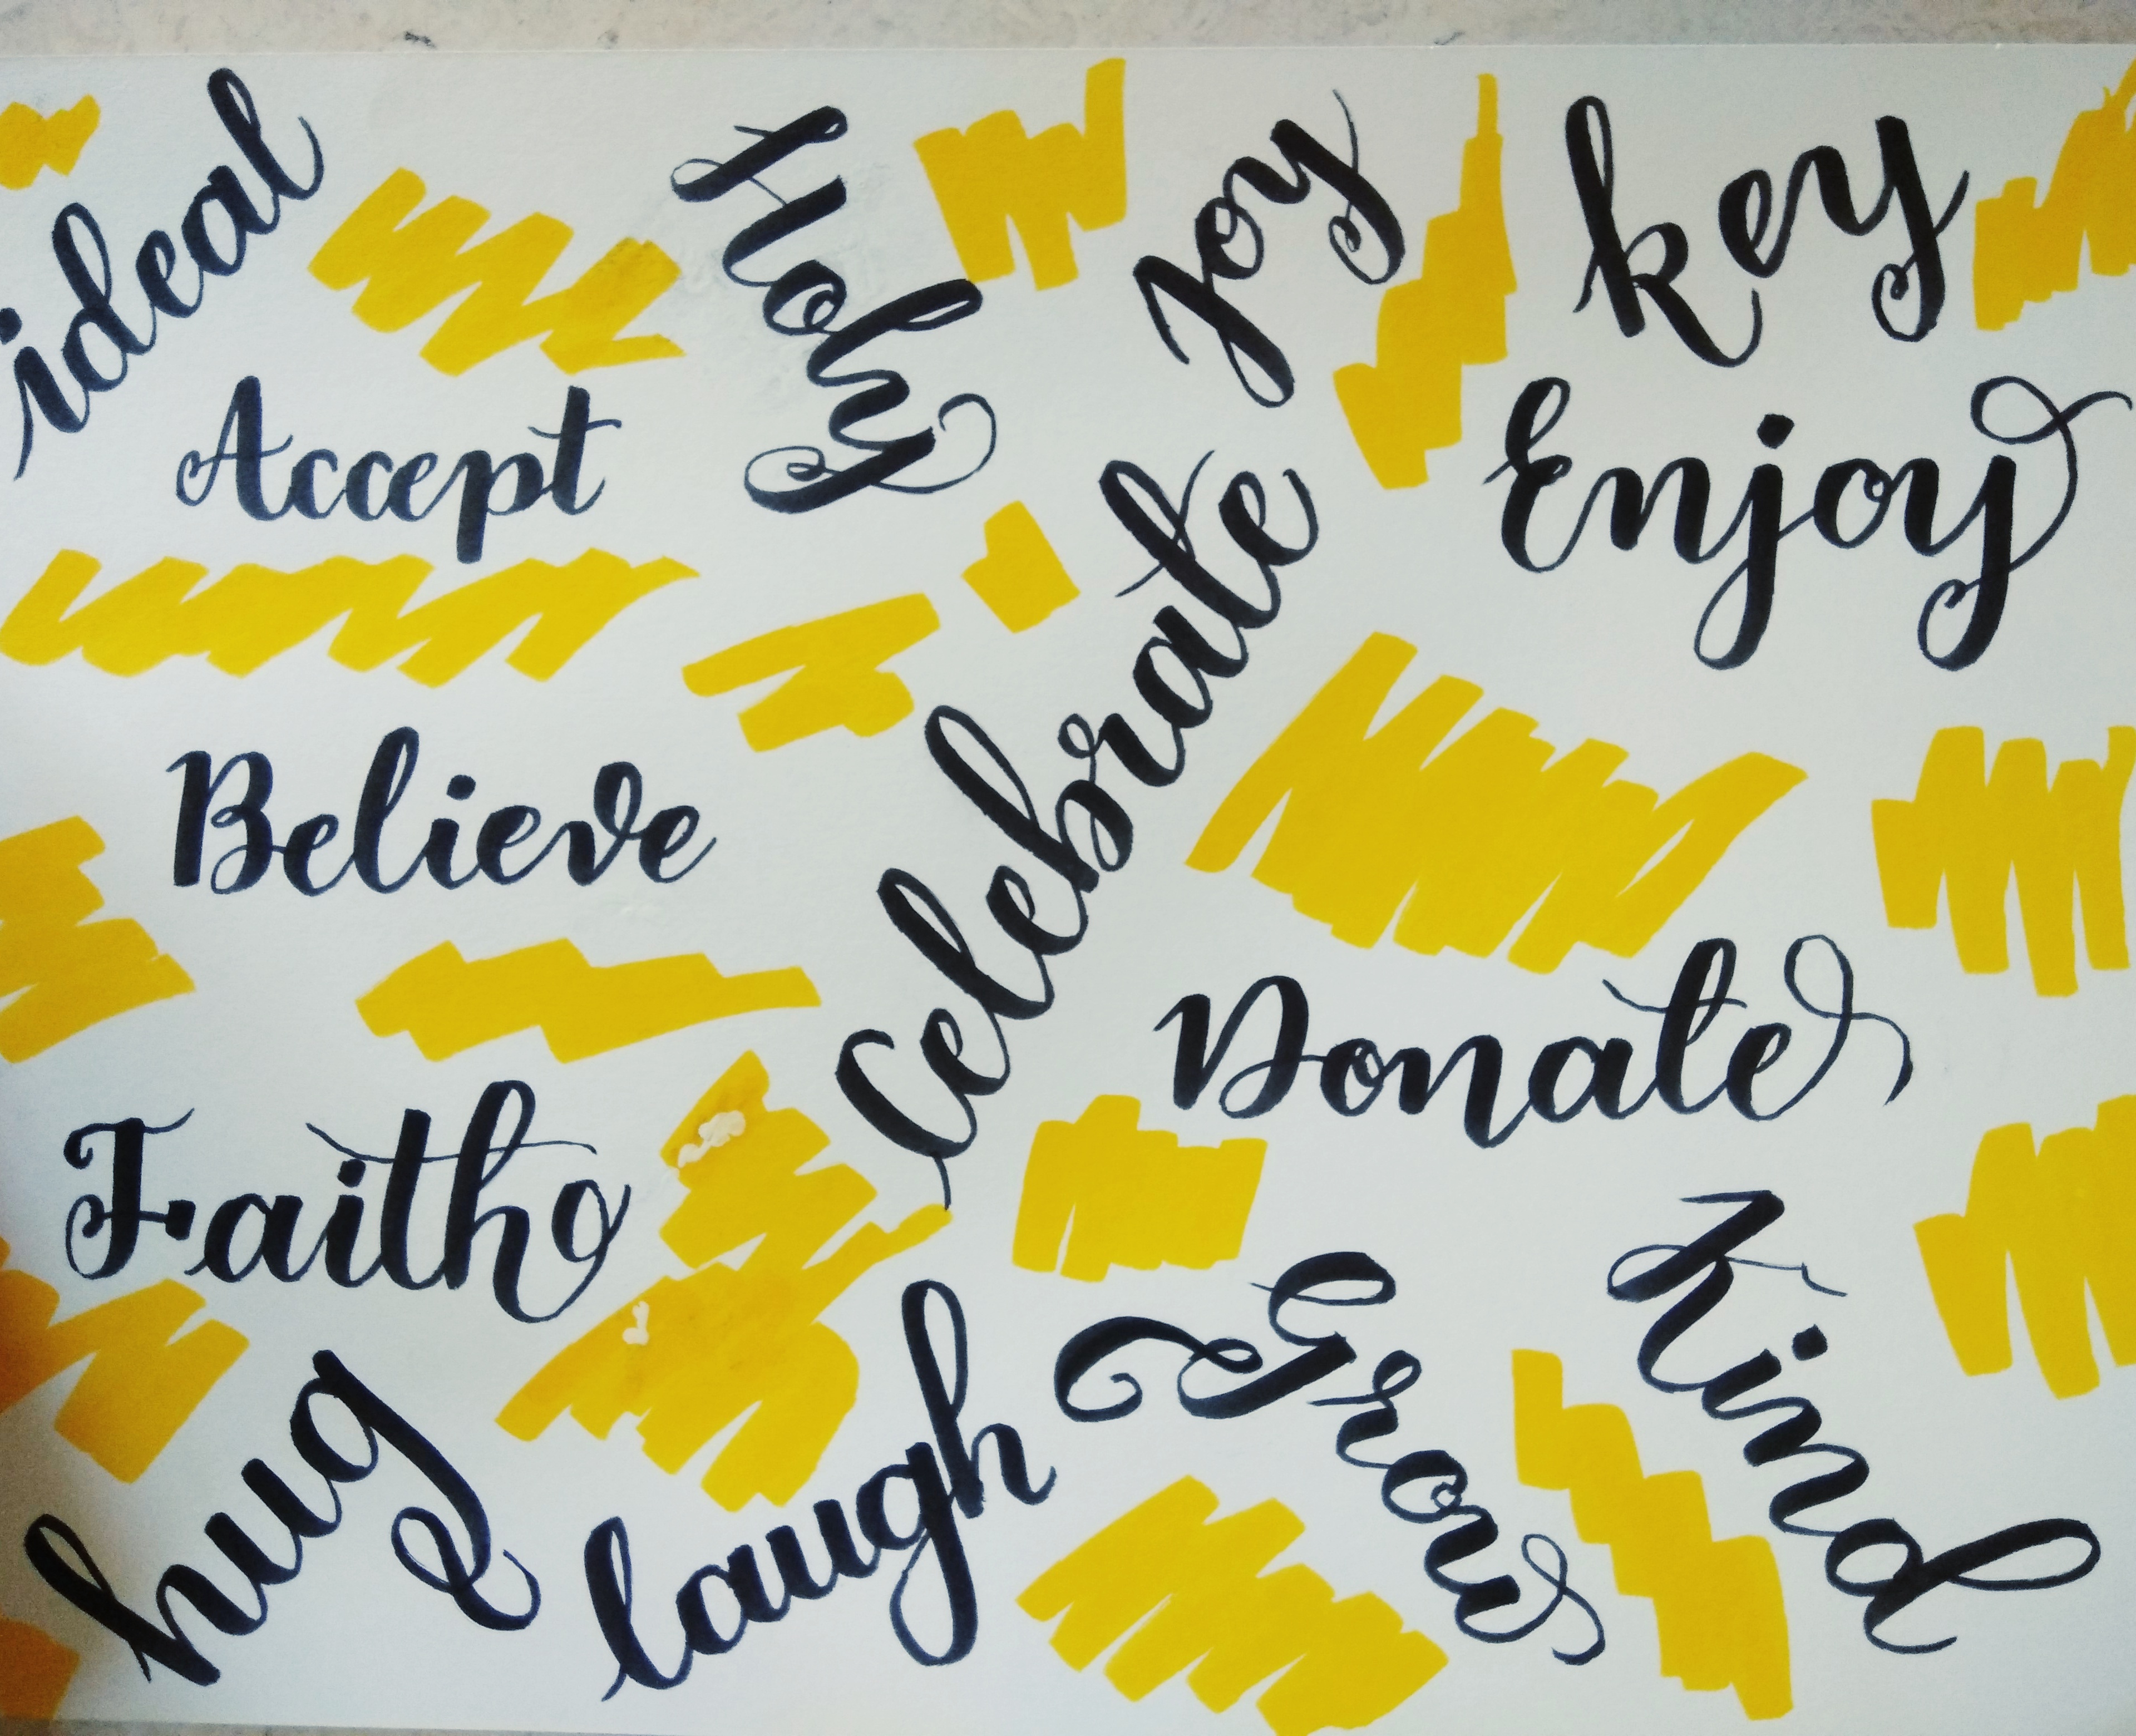 ideal
Holy
Joy
key
Accept
Enjoy
Celebrate
Believe
Donate
Faith
Kind
Grow
hug
laugh